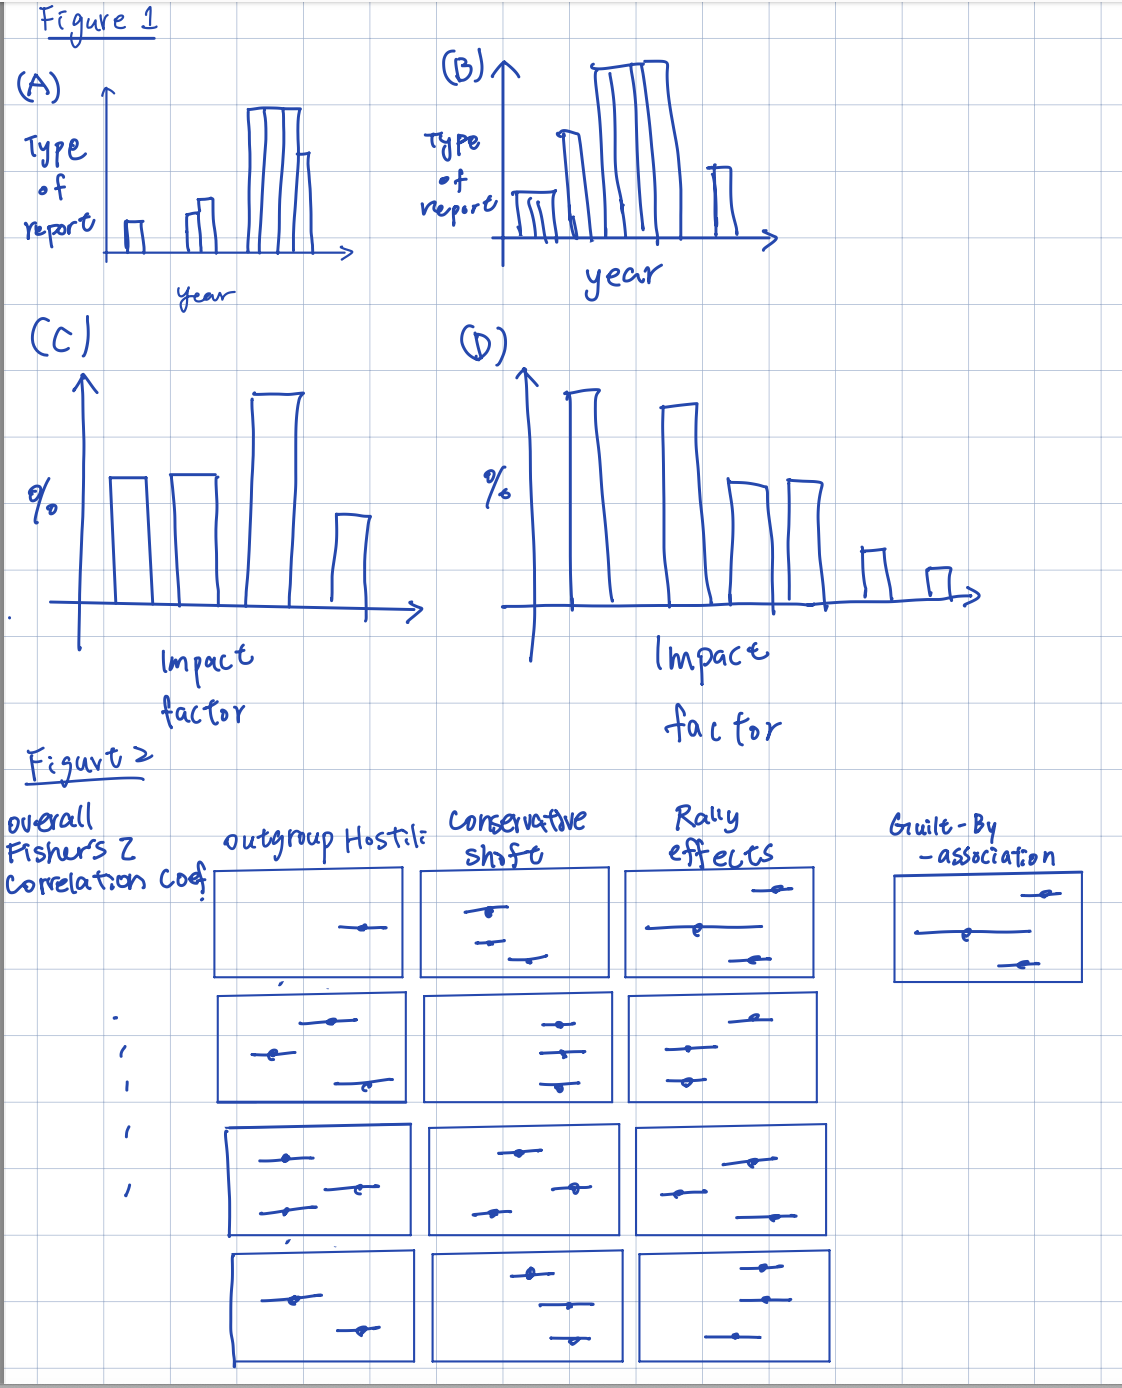 Figure 1
(A)
Type
of
report
year
(B)
Type
of
report
year
(C)
%
Impact
factor
(D)
%
Impact
factor
Figurt 2
overall
Fisher's Z
Correlation Coef.
outgroup Hostili
Conservative
shoft
Rally
effects
Guilt-By
-association